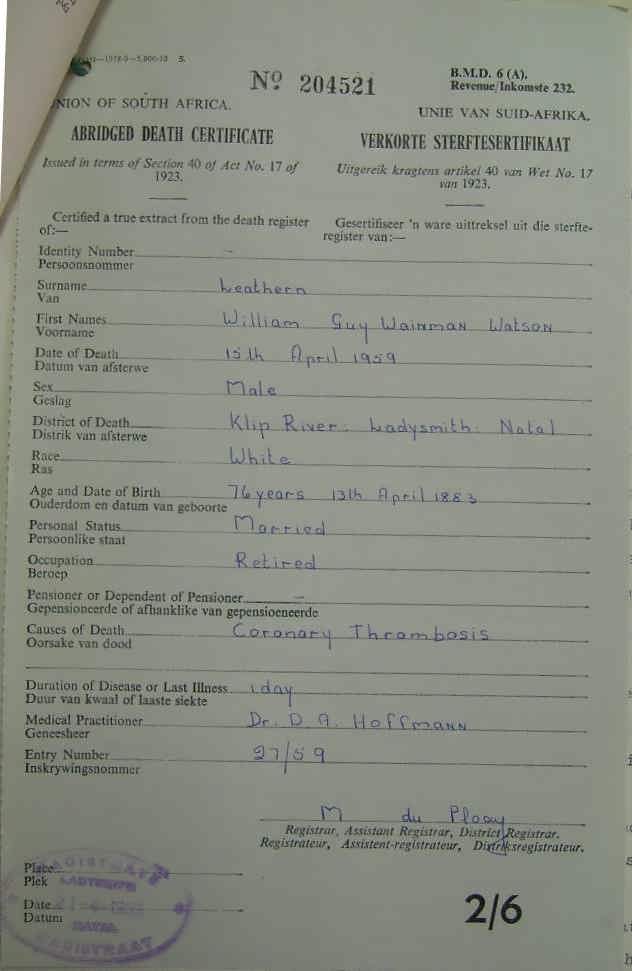 1958-9—5,000-10 S.
Nº 204521
B.M.D. 6 (A).
Revenue/Inkomste 232.
UNION OF SOUTH AFRICA.
UNIE VAN SUID-AFRIKA.
ABRIDGED DEATH CERTIFICATE
VERKORTE STERFTESERTIFIKAAT
Issued in terms of Section 40 of Act No. 17 of
1923.
Uitgereik kragtens artikel 40 van Wet No. 17
van 1923.
Certified a true extract from the death register
of:—
Gesertifiseer 'n ware uittreksel uit die sterfte-
register van:—
Identity Number –
Persoonsnommer
Surname Leathern
Van
First Names William Guy Wainman Watson
Voorname
Date of Death 15th April 1959
Datum van afsterwe
Sex Male
Geslag
District of Death Klip River: Ladysmith: Natal
Distrik van afsterwe
Race White
Ras
Age and Date of Birth 76 years 13th April 1883
Ouderdom en datum van geboorte
Personal Status Married
Persoonlike staat
Occupation Retired
Beroep
Pensioner or Dependent of Pensioner –
Gepensioneerde of afhanklike van gepensioeneerde
Causes of Death Coronary Thrambosis
Oorsake van dood
Duration of Disease or Last Illness 1 day
Duur van kwaal of laaste siekte
Medical Practitioner Dr. D. G. Hoffmann
Geneesheer
Entry Number 27/59
Inskrywingsnommer
M du Plooy
Registrar, Assistant Registrar, District Registrar.
Registrateur, Assistent-registrateur, Distriksregistrateur.
Place
Plek
Date
Datum
MAGISTRATE
LADYSMITH
NATAL
MAGISTRAAT
2/6